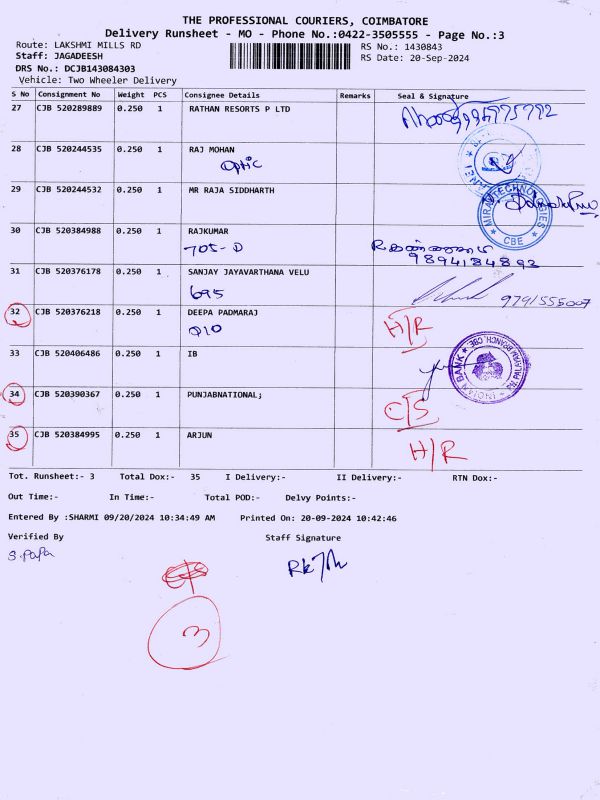 THE PROFESSIONAL COURIERS, COIMBATORE
Delivery Runsheet - MO - Phone No.:0422-3505555 - Page No.:3
Route: LAKSHMI MILLS RD
RS No.: 1430843
Staff: JAGADEESH
RS Date: 20-Sep-2024
DRS No.: DCJB143084303
Vehicle: Two Wheeler Delivery
S No Consignment No Weight PCS Consignee Details Remarks Seal & Signature
27 CJB 520289889 0.250 1 RATHAN RESORTS P LTD
28 CJB 520244535 0.250 1 RAJ MOHAN
Optic
29 CJB 520244532 0.250 1 MR RAJA SIDDHARTH
MIRA TECHNOLOGIES
CBE
30 CJB 520384988 0.250 1 RAJKUMAR
705-D
9894184892
31 CJB 520376178 0.250 1 SANJAY JAYAVARTHANA VELU
695
9791555007
32 CJB 520376218 0.250 1 DEEPA PADMARAJ H/R
910
33 CJB 520406486 0.250 1 IB
INDIAN BANK
34 CJB 520390367 0.250 1 PUNJABNATIONAL; C/S
35 CJB 520384995 0.250 1 ARJUN H/R
Tot. Runsheet:- 3 Total Dox:- 35 I Delivery:- II Delivery:- RTN Dox:-
Out Time:- In Time:- Total POD:- Delvy Points:-
Entered By :SHARMI 09/20/2024 10:34:49 AM Printed On: 20-09-2024 10:42:46
Verified By Staff Signature
S. Papa
3